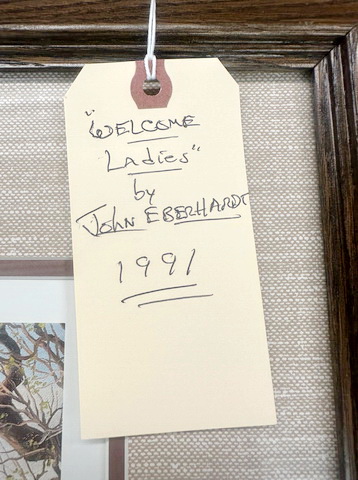 "WELCOME
Ladies"
by
JOHN EBERHARDT
1991